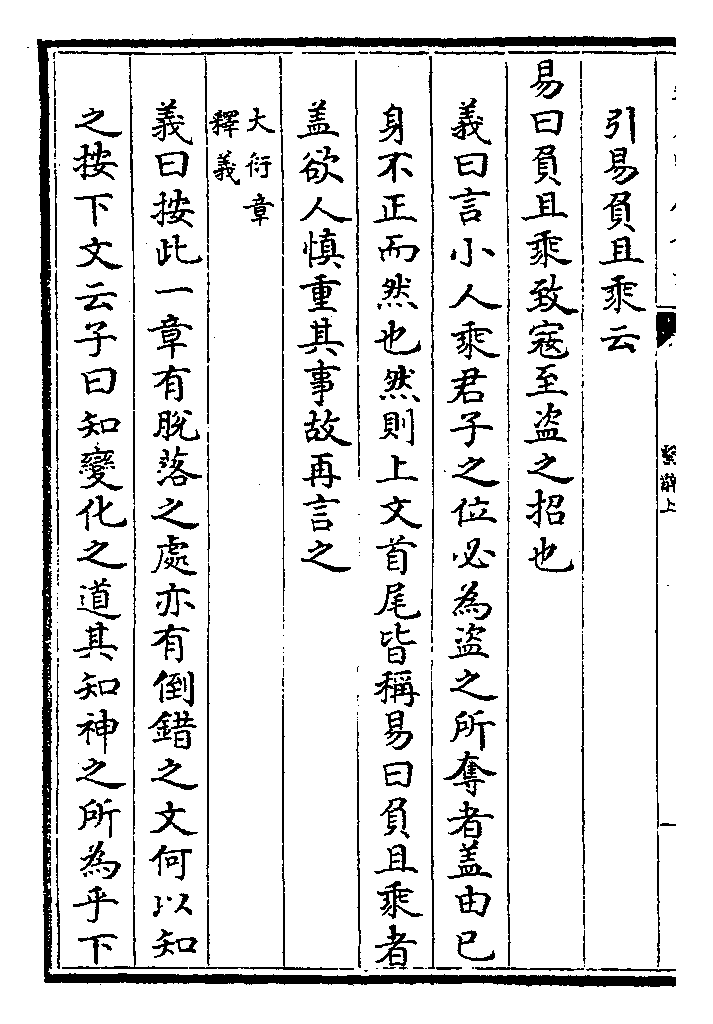 繫辭上
一
引易負且乘云
易曰負且乘致寇至盜之招也
義曰言小人乘君子之位必為盜之所奪者蓋由已
身不正而然也然則上文首尾皆稱易曰負且乘者
蓋欲人慎重其事故再言之
大衍章
釋義
義曰按此一章有脫落之處亦有倒錯之文何以知
之按下文云子曰知變化之道其知神之所為乎下